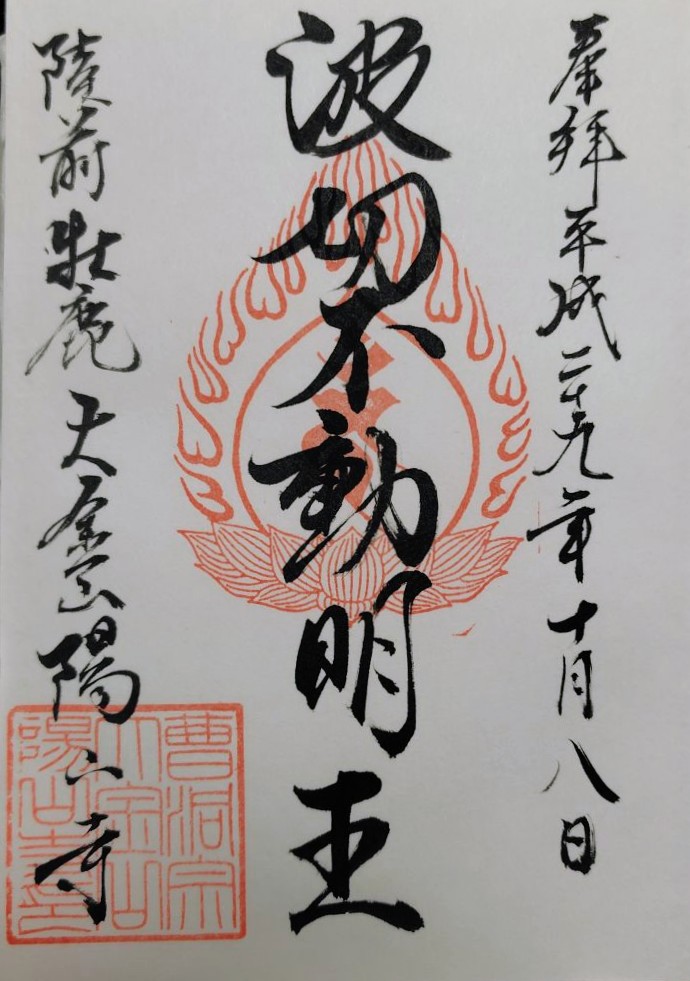 奉拝 平成二十九年十月八日
波切不動明王
陸前牡鹿 大金山 陽山寺
曹洞宗
大金山
陽山寺印